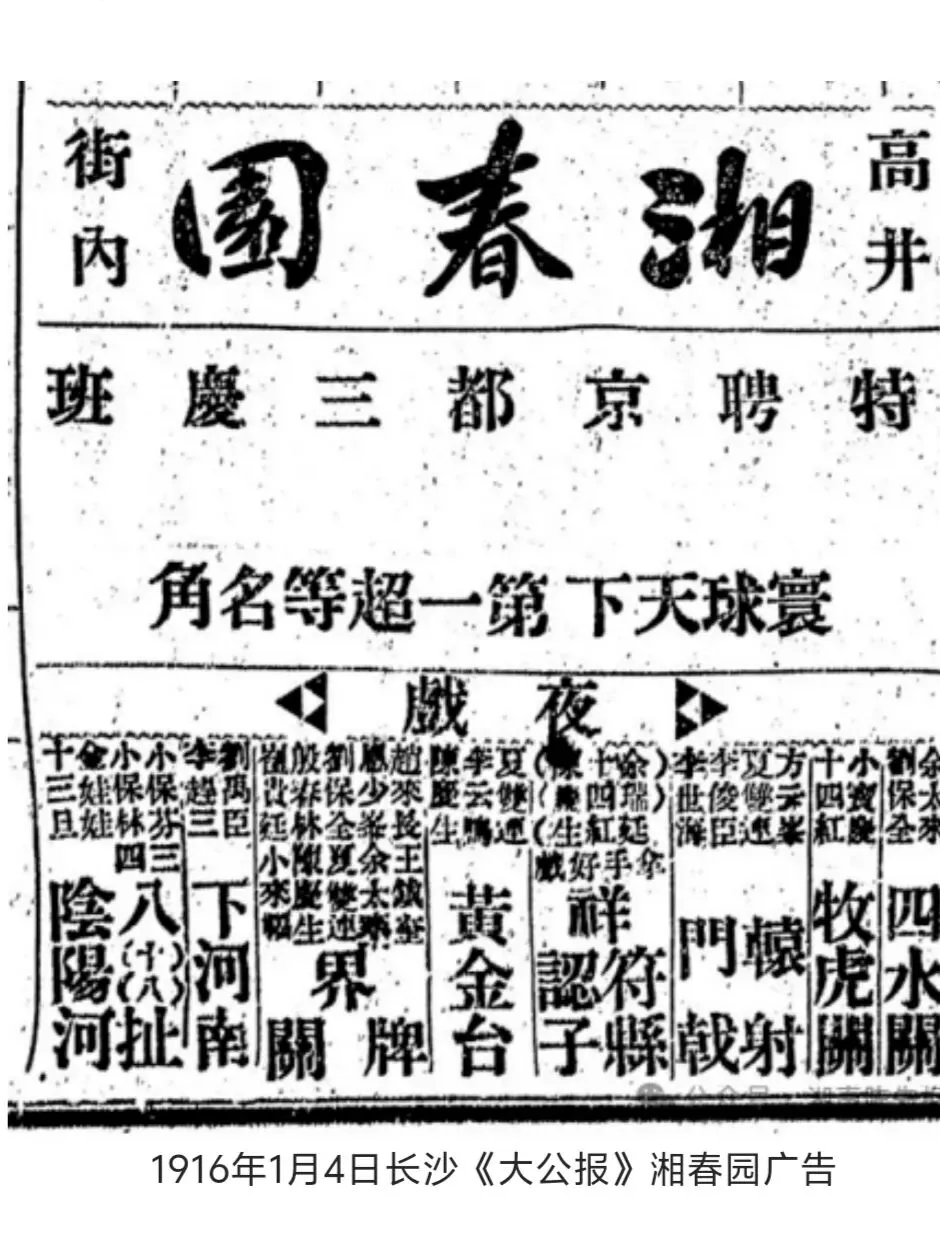 高井
湘春園
街內
特聘京都三慶班
寰球天下第一超等名角
夜戲
余太來
劉保全
四水關
小寶慶
十四紅
牧虎關
方云峯
夏雙連
李俊臣
李世海
轅門射戟
余瑞延
十四紅
陳慶生
拿手好戲
祥符縣
認子
夏雙連
李云鵬
陳慶生
黃金台
趙來長王
少峯余太來
劉保全夏雙連
殷春林陳慶生
貴廷小來
界牌關
劉禹臣
李趕三
下河南
小保芬三
小保林四
八(十八)扯
金娃娃
十三旦
陰陽河
公众号
1916年1月4日长沙《大公报》湘春园广告